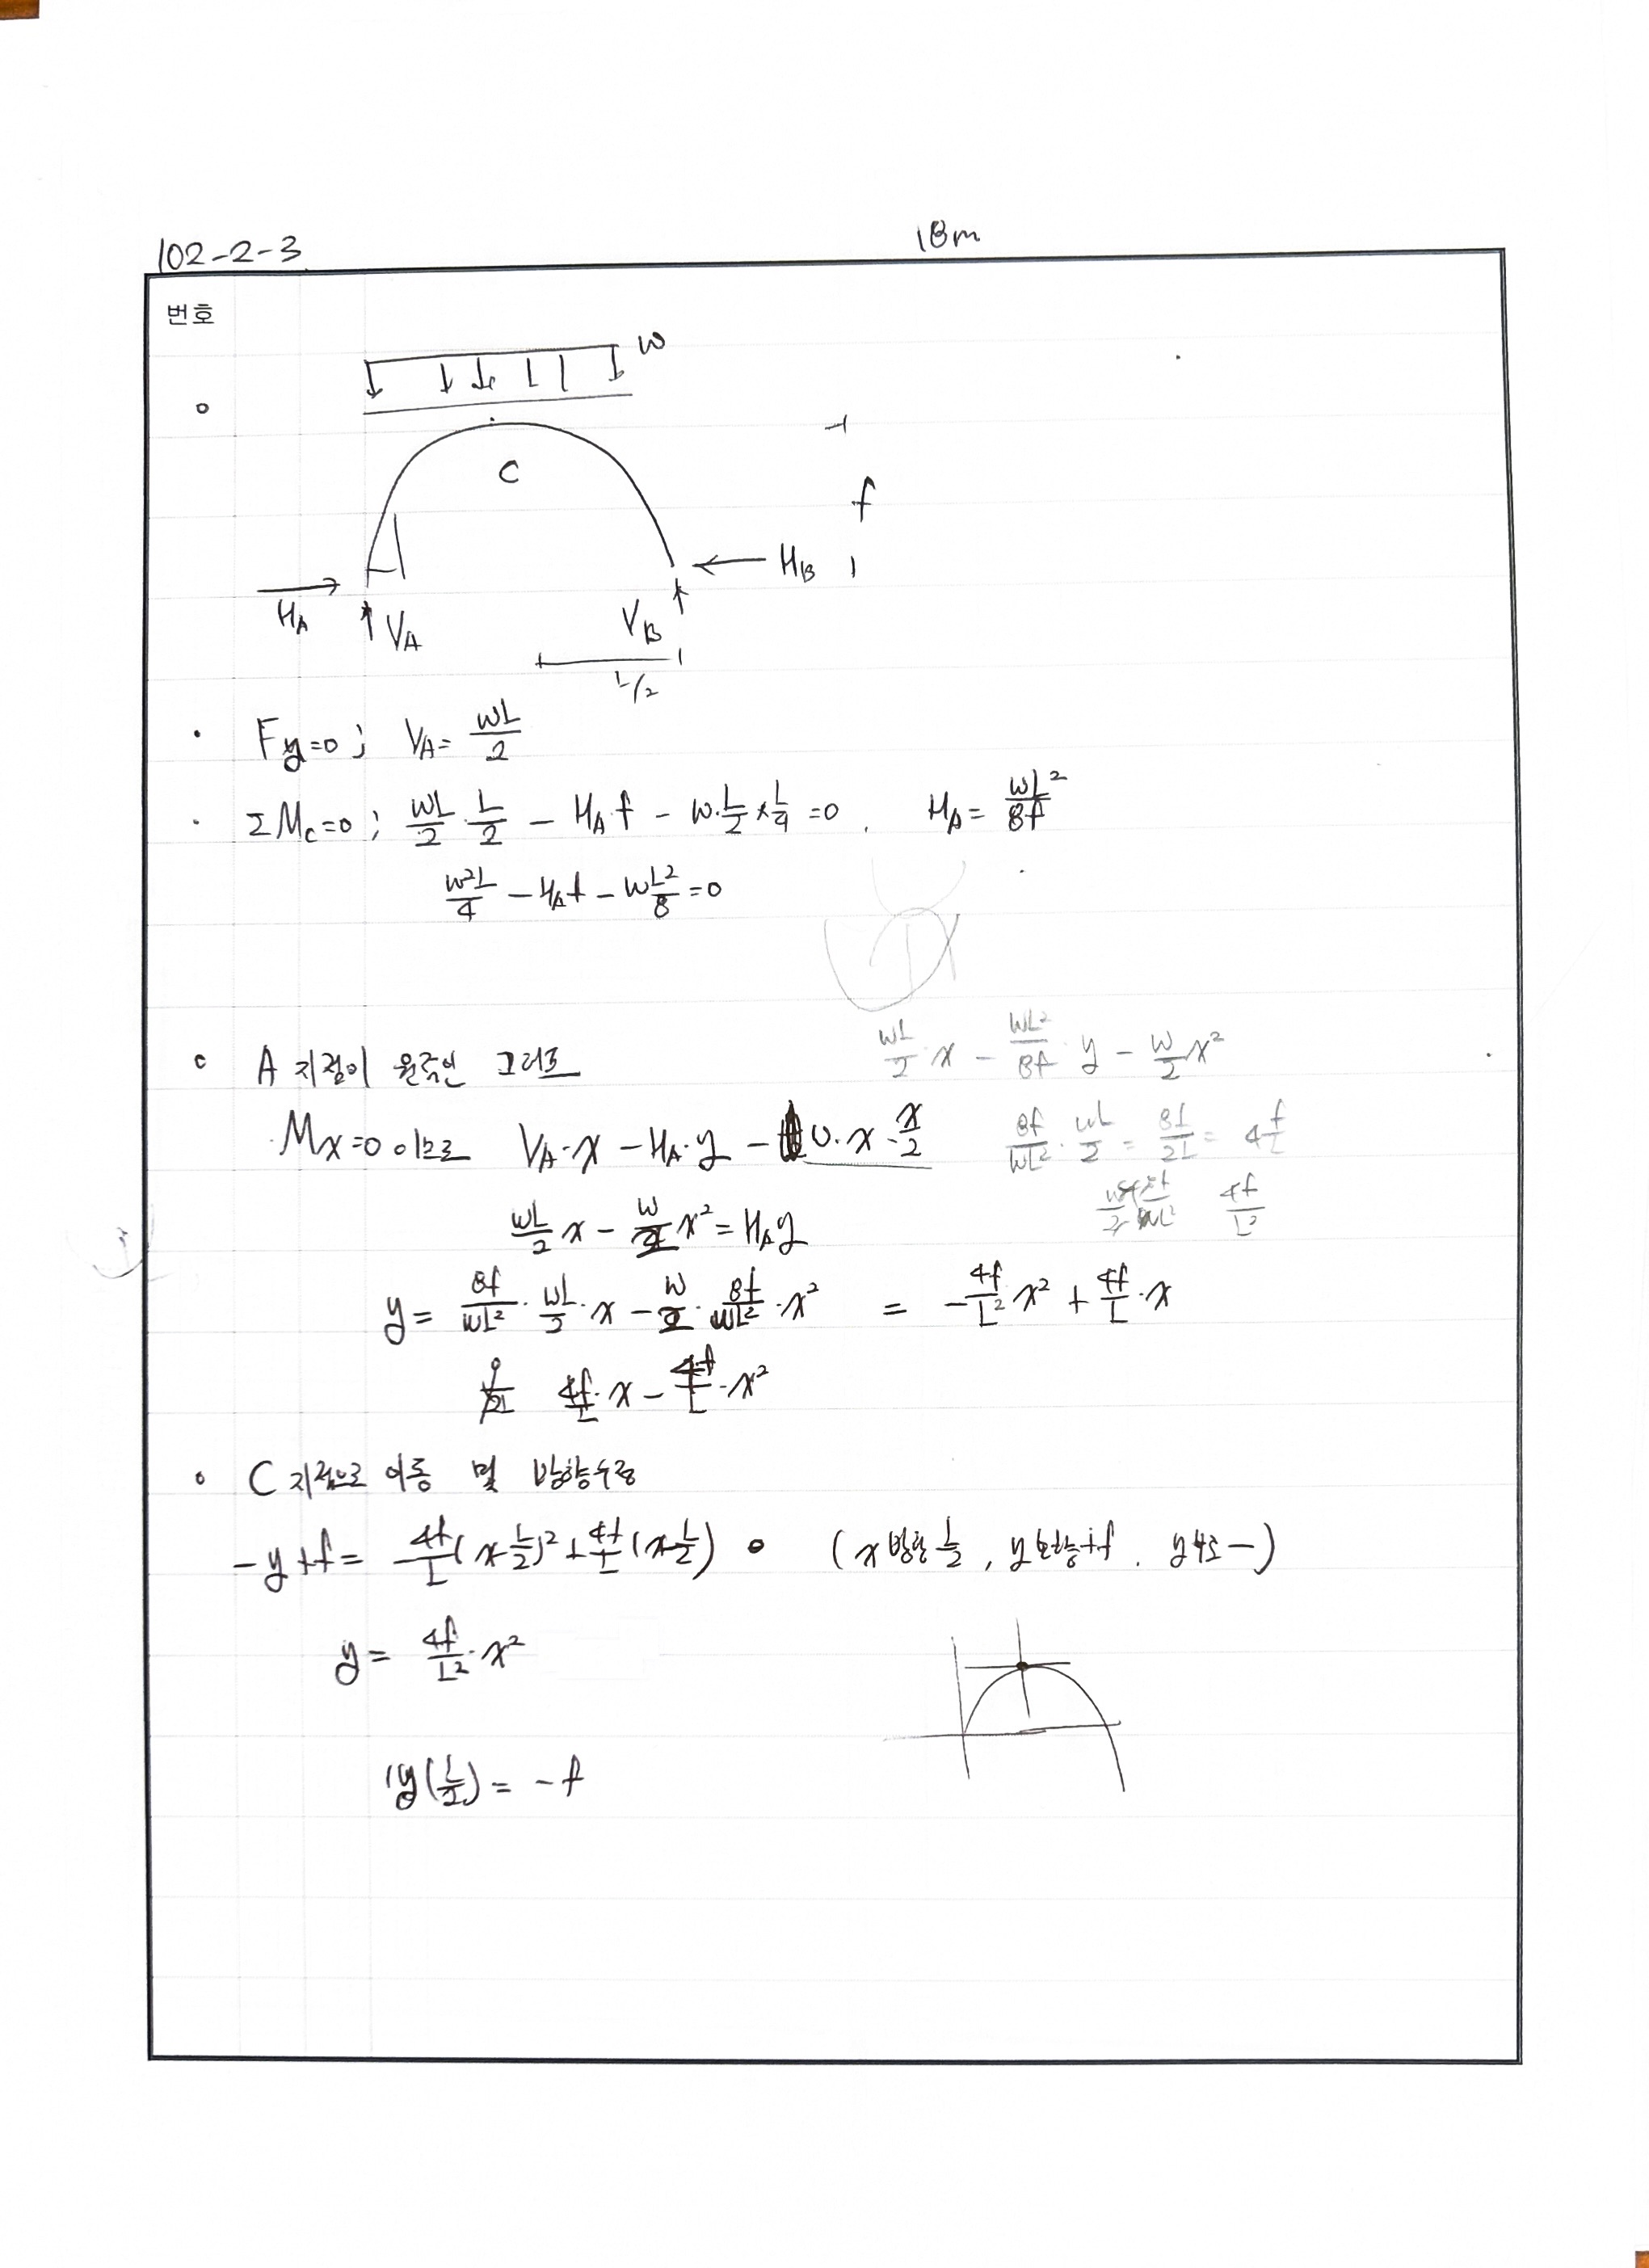 102-2-3
18m
번호
w
C
f
HA
VA
VB
HB
L/2
Fy=0 ; VA = wL/2
ΣMc=0 ; wL/2 · L/2 - HA·f - w·L/2 × L/4 = 0 . HA = wL²/8f
w²L/4 - HAf - wL²/8 = 0
wL/2 x - wL²/8f y - w/2 x²
A 지점이 원점인 그래프
Mx=0 이므로 VA·x - HA·y - w·x·x/2
8f/wL² · wL/2 = 8f/2L = 4f/L
4f/L²
wL/2 x - w/2 x² = HAy
y = 8f/wL² · wL/2 · x - w/2 · 8f/wL² · x² = -4f/L² x² + 4f/L · x
4f/L · x - 4f/L · x²
C 지점으로 이동 및 방향수정
-y+f = -4f/L (x-L/2)² + 4f/L (x-L/2) (x방향 L/2 , y방향+f . y부호 -)
y = 4f/L² · x²
y(L/2) = -f